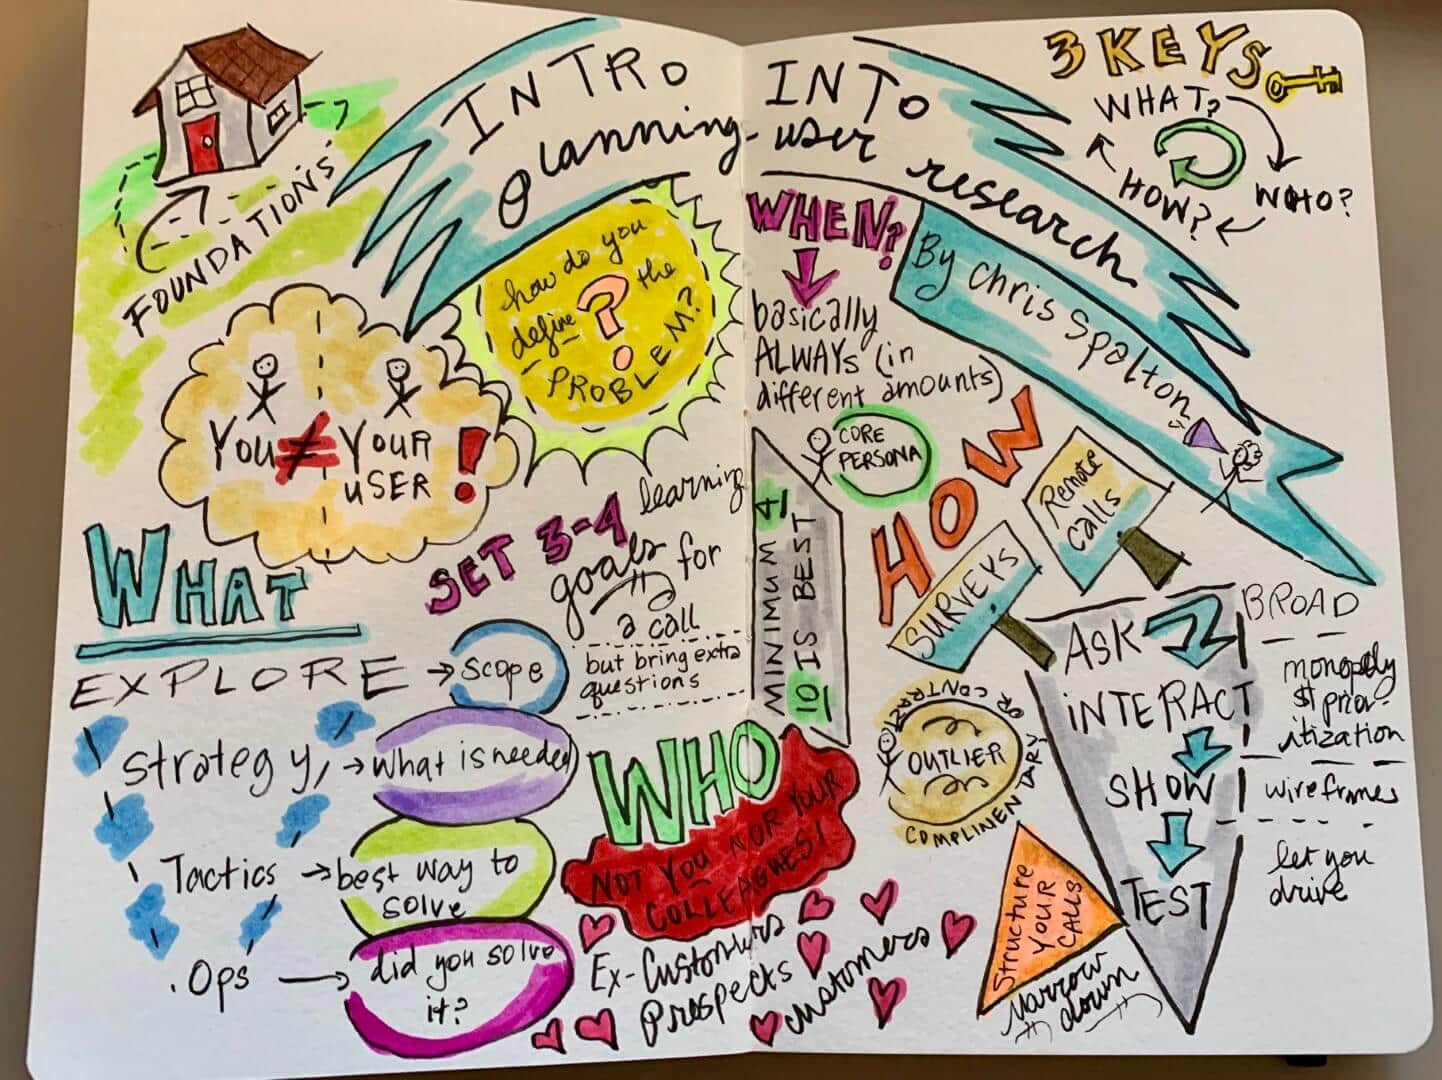 INTRO INTO
planning user research
By Chris Spalton
3 KEYS
WHAT?
WHO?
HOW?
FOUNDATIONS
how do you
define the
?
PROBLEM?
YOU ≠ YOUR
USER !
WHAT
EXPLORE → scope
strategy, → what is needed
Tactics → best way to
solve
. Ops → did you solve
it?
SET 3-4 learning
goals for
a call
but bring extra
questions
WHEN?
basically
ALWAYS (in
different amounts)
CORE
PERSONA
MINIMUM 4
10 IS BEST
WHO
NOT YOU NOR YOUR
COLLEAGUES!
Ex-Customers
Prospects
customers
HOW
Remote
calls
SURVEYS
OR CONTRARY
OUTLIER
COMPLINENTARY
ASK
INTERACT
SHOW
TEST
BROAD
monopoly
$ prior-
itization
wireframes
let you
drive
Structure
YOUR
CALLS
Narrow
down